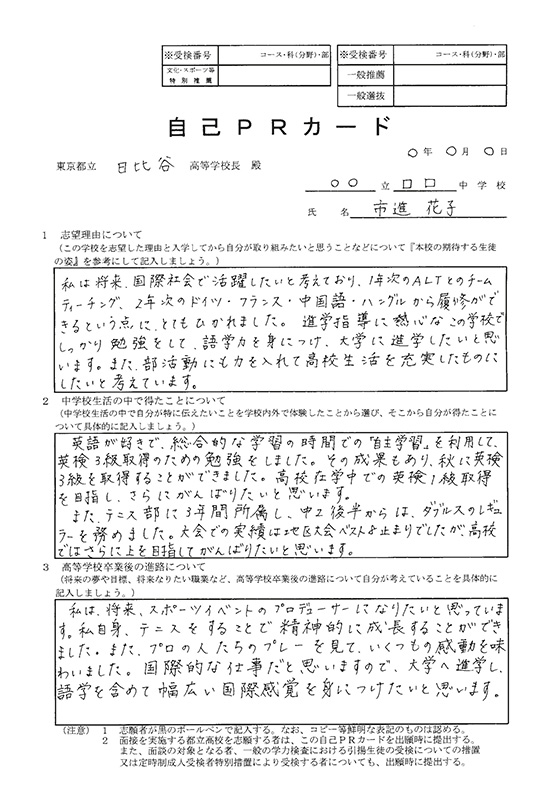 ※受検番号 コース・科(分野)・部
文化・スポーツ等
特別推薦
※受検番号 コース・科(分野)・部
一般推薦
一般選抜
自己PRカード
○年 ○月 ○日
東京都立 日比谷 高等学校長 殿
○○ 立 口口 中学校
氏名 市進 花子
1 志望理由について
(この学校を志望した理由と入学してから自分が取り組みたいと思うことなどについて『本校の期待する生徒
の姿』を参考にして記入しましょう。)
私は将来、国際社会で活躍したいと考えており、1年次のALTとのチーム
ティーチング、2年次のドイツ・フランス・中国語・ハングルから履修がで
きるという点に、とてもひかれました。進学指導に熱心なこの学校で
しっかり勉強をして、語学力を身につけ、大学に進学したいと思
います。また、部活動にも力を入れて高校生活を充実したものに
したいと考えています。
2 中学校生活の中で得たことについて
(中学校生活の中で自分が特に伝えたいことを学校内外で体験したことから選び、そこから自分が得たことに
ついて具体的に記入しましょう。)
英語が好きで、総合的な学習の時間での「自主学習」を利用して、
英検3級取得のための勉強をしました。その成果もあり、秋に英検
3級を取得することができました。高校在学中での英検1級取得
を目指し、さらにがんばりたいと思います。
また、テニス部に3年間所属し、中2後半からは、ダブルスのレギュ
ラーを務めました。大会での実績は地区大会ベスト8止まりでしたが、高校
ではさらに上を目指してがんばりたいと思います。
3 高等学校卒業後の進路について
(将来の夢や目標、将来なりたい職業など、高等学校卒業後の進路について自分が考えていることを具体的に
記入しましょう。)
私は、将来、スポーツイベントのプロデューサーになりたいと思っていま
す。私自身、テニスをすることで精神的に成長することができ
ました。また、プロの人たちのプレーを見て、いくつもの感動を味
わいました。国際的な仕事だと思いますので、大学へ進学し、
語学を含めて幅広い国際感覚を身につけたいと思います。
(注意) 1 志願者が黒のボールペンで記入する。なお、コピー等鮮明な表記のものは認める。
2 面接を実施する都立高校を志願する者は、この自己PRカードを出願時に提出する。
また、面談の対象となる者、一般の学力検査における引揚生徒の受検についての措置
又は定時制成人受検者特別措置により受検する者についても、出願時に提出する。